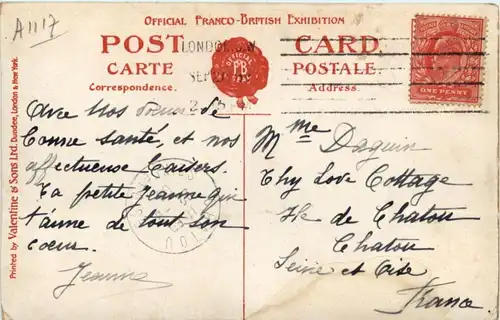 A1117
OFFICIAL FRANCO-BRITISH EXHIBITION
POST CARD
CARTE POSTALE
Correspondence. Address.
OFFICIAL
F B
LONDON. S.W
SEP
ONE PENNY
Printed by Valentine & Sons Ltd. Dundee, London & New York.
Avec nos vœux de
bonne santé, et nos
affectueux baisers.
Ta petite Jeanne qui
t'aime de tout son
coeur.
Jeanne
Mme Daguin
Thy Love Cottage
Ile de Chatou
Chatou
Seine et Oise
France